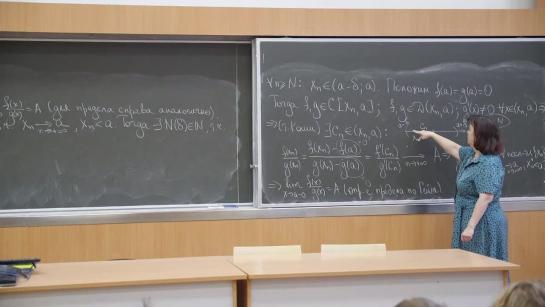 f(x)/g(x) = A (для предела справа аналогично).
xₙ → a, n→∞, xₙ<a. Тогда ∃ N(δ)∈ℕ, т.ч.
∀n≥N: xₙ∈(a-δ; a). Положим f(a)=g(a)=0
Тогда f,g∈C[xₙ,a]; f,g∈D(xₙ,a); g(x)≠0 ∀x∈(xₙ,a)
⇒ (т. Коши) ∃Cₙ∈(xₙ,a):
f(xₙ)/g(xₙ) = (f(xₙ)-f(a))/(g(xₙ)-g(a)) = f'(Cₙ)/g'(Cₙ) → n→∞ A ⇒
⇒ lim x→a-0 f(x)/g(x) = A (опр-е предела по Гейне)